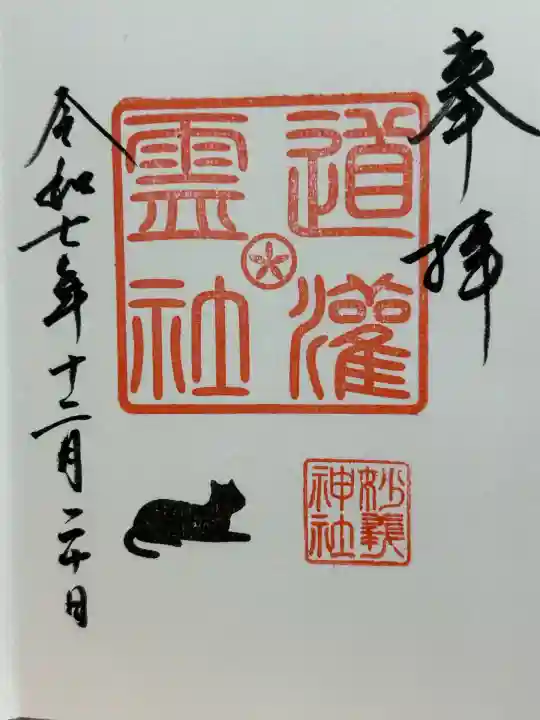 奉拝
道灌
霊社
妙義
神社
令和七年十二月二十日